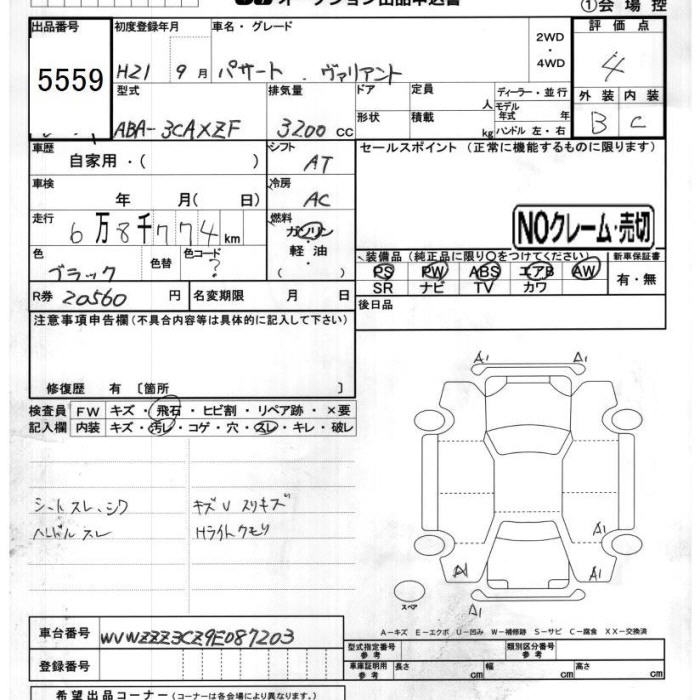 オークション出品申込書
①会場控
出品番号
5559
初度登録年月
H21 9月
車名・グレード
パサート . ヴァリアント
2WD
・
4WD
評価点
4
外装 内装
B C
型式
ABA-3CAXZF
排気量
3200 cc
ドア
形状
定員
人
積載
kg
ディーラー・並行
モデル
年式 年
ハンドル 左・右
車歴
自家用・( )
シフト
AT
セールスポイント (正常に機能するものに限ります)
車検
年 月( 日)
冷房
AC
走行
6万8千774km
燃料
ガソリン
軽油
( )
NOクレーム・売切
色
ブラック
色替
色コード
?
装備品 (純正品に限り○をつけてください)
PS PW ABS エアB AW
SR ナビ TV カワ
新車保証書
有・無
R券 20560 円
名変期限 月 日
後日品
注意事項申告欄(不具合内容等は具体的に記入して下さい)
修復歴 有 [箇所 ]
検査員 FW キズ・飛石・ヒビ割・リペア跡・×要
記入欄 内装 キズ・汚レ・コゲ・穴・スレ・キレ・破レ
シートスレ、シワ
ハンドルスレ
キズU スリキズ
Hライトクモリ
A1 A1
A1
A1
A1
スペア
A1
A−キズ E−エクボ U−凹み W−補修跡 S−サビ C−腐食 XX−交換済
車台番号 WVWZZZ3CZ9E087203
登録番号
型式指定番号
参考
類別区分番号
参考
車庫証明用
参考
長さ cm 幅 cm 高さ cm
希望出品コーナー (コーナーは各会場により異なります。)